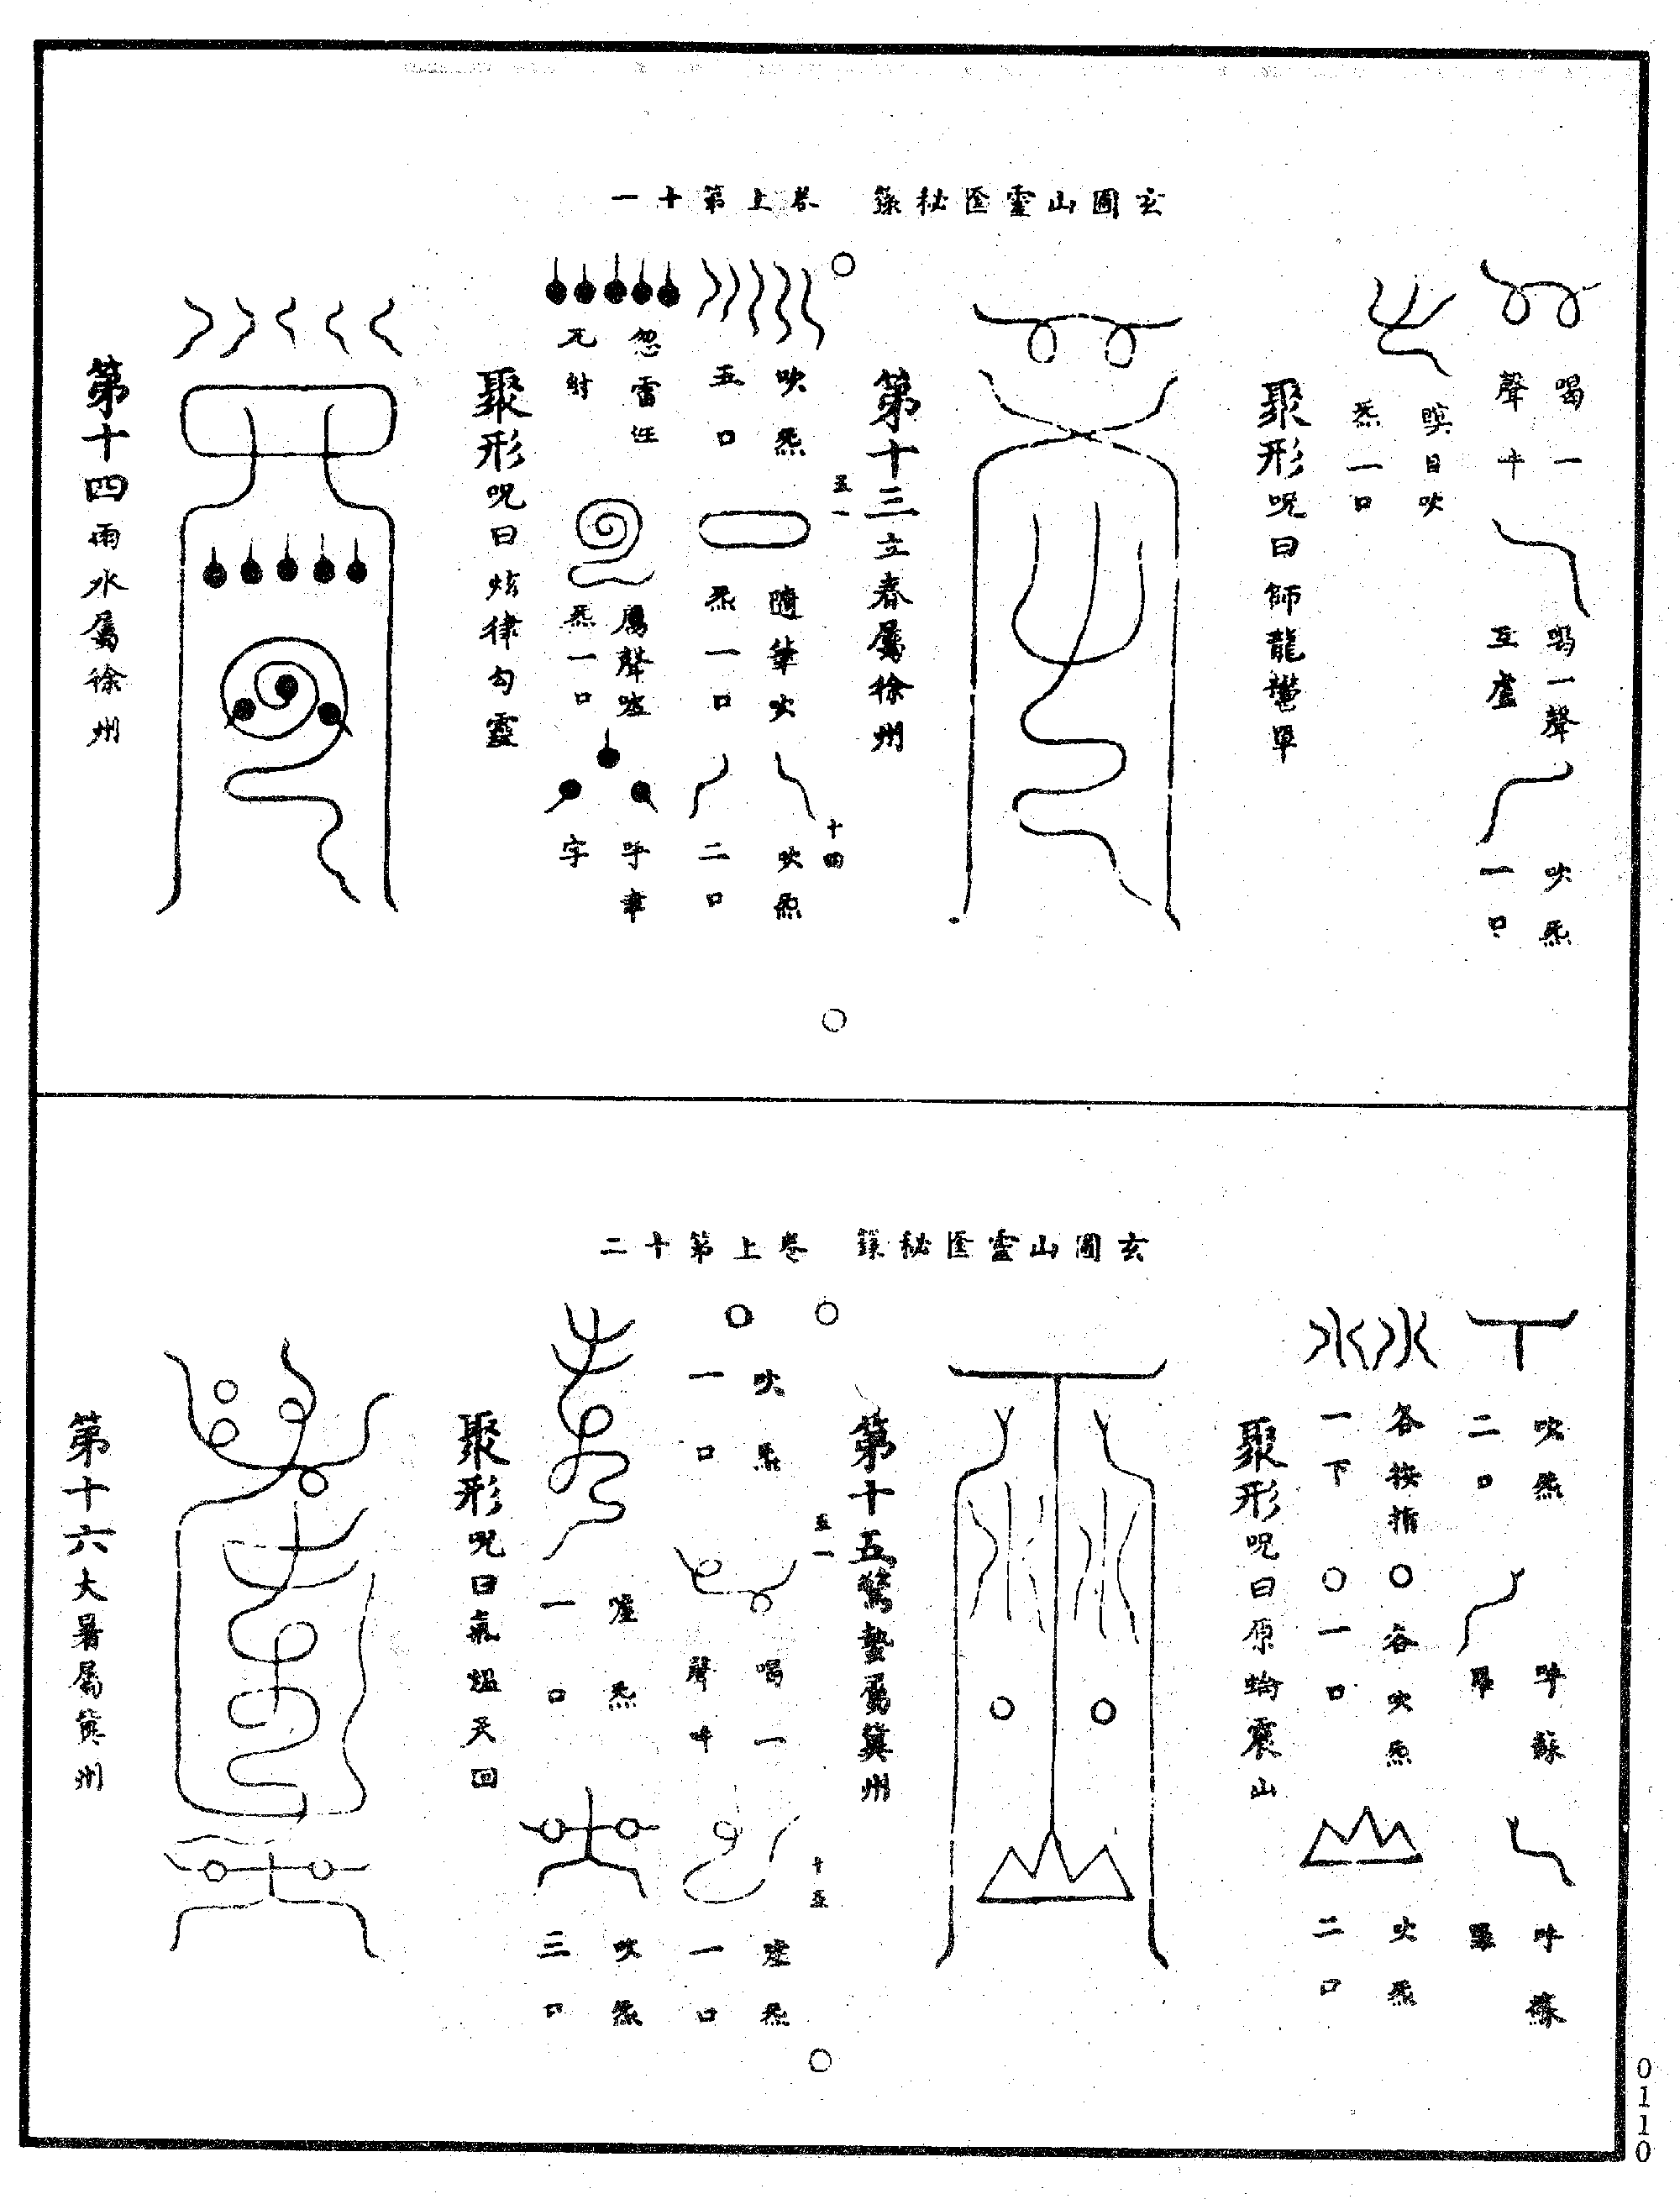 玄圃山靈匧秘籙　卷上第十一
喝一
聲吽
喝一聲
互盧
吹炁
一口
瞑目吹
炁一口
聚形呪曰師龍鬱單
第十三立春屬徐州
五一
十四
吹炁
五口
隨筆吹
炁一口
吹炁
二口
忽雷任
兀射
鷹聲噓
炁一口
吽聿
字
聚形呪曰炫律勾靈
第十四雨水屬徐州
玄圃山靈匧秘籙　卷上第十二
吹炁
二口
吽蘇
囉
吽蘇
囉
各按指
一下
○各吹炁
○一口
吹炁
二口
聚形呪曰原蛕震山
第十五驚蟄屬冀州
五一
十五
吹炁
一口
喝一
聲吽
噓炁
一口
噓炁
一口
吹炁
三口
聚形呪曰氣煴天回
第十六大暑屬冀州
0110